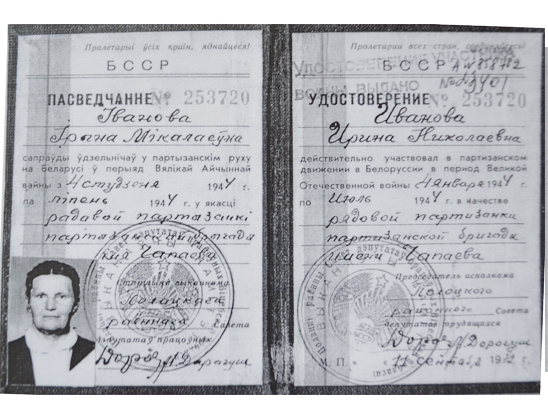 Пралетарыі ўсіх краін, яднайцеся!
БССР
ПАСВЕДЧАННЕ № 253720
Іванова
Ірына Мікалаеўна
сапраўды ўдзельнічаў у партызанскім руху
на Беларусі ў перыяд Вялікай Айчыннай
вайны з 4 студзеня 1944 г.
па ліпень 1944 г. у якасці
радавой партызанкі
партызанскай брыгады
імя Чапаева
Полацкага
раённага Савета
дэпутатаў працоўных
Пролетарии всех стран, соединяйтесь!
БССР
УДОСТОВЕРЕНИЕ
ВОЙНЫ ВЫДАНО
А № 858782
УДОСТОВЕРЕНИЕ № 253720
Иванова
Ирина Николаевна
действительно участвовал в партизанском
движении в Белоруссии в период Великой
Отечественной войны с 4 января 1944 г.
по Июль 1944 г. в качестве
рядовой партизанки
партизанской бригады
имени Чапаева
Председатель исполкома
Полоцкого
районного Совета
депутатов трудящихся
М. П.